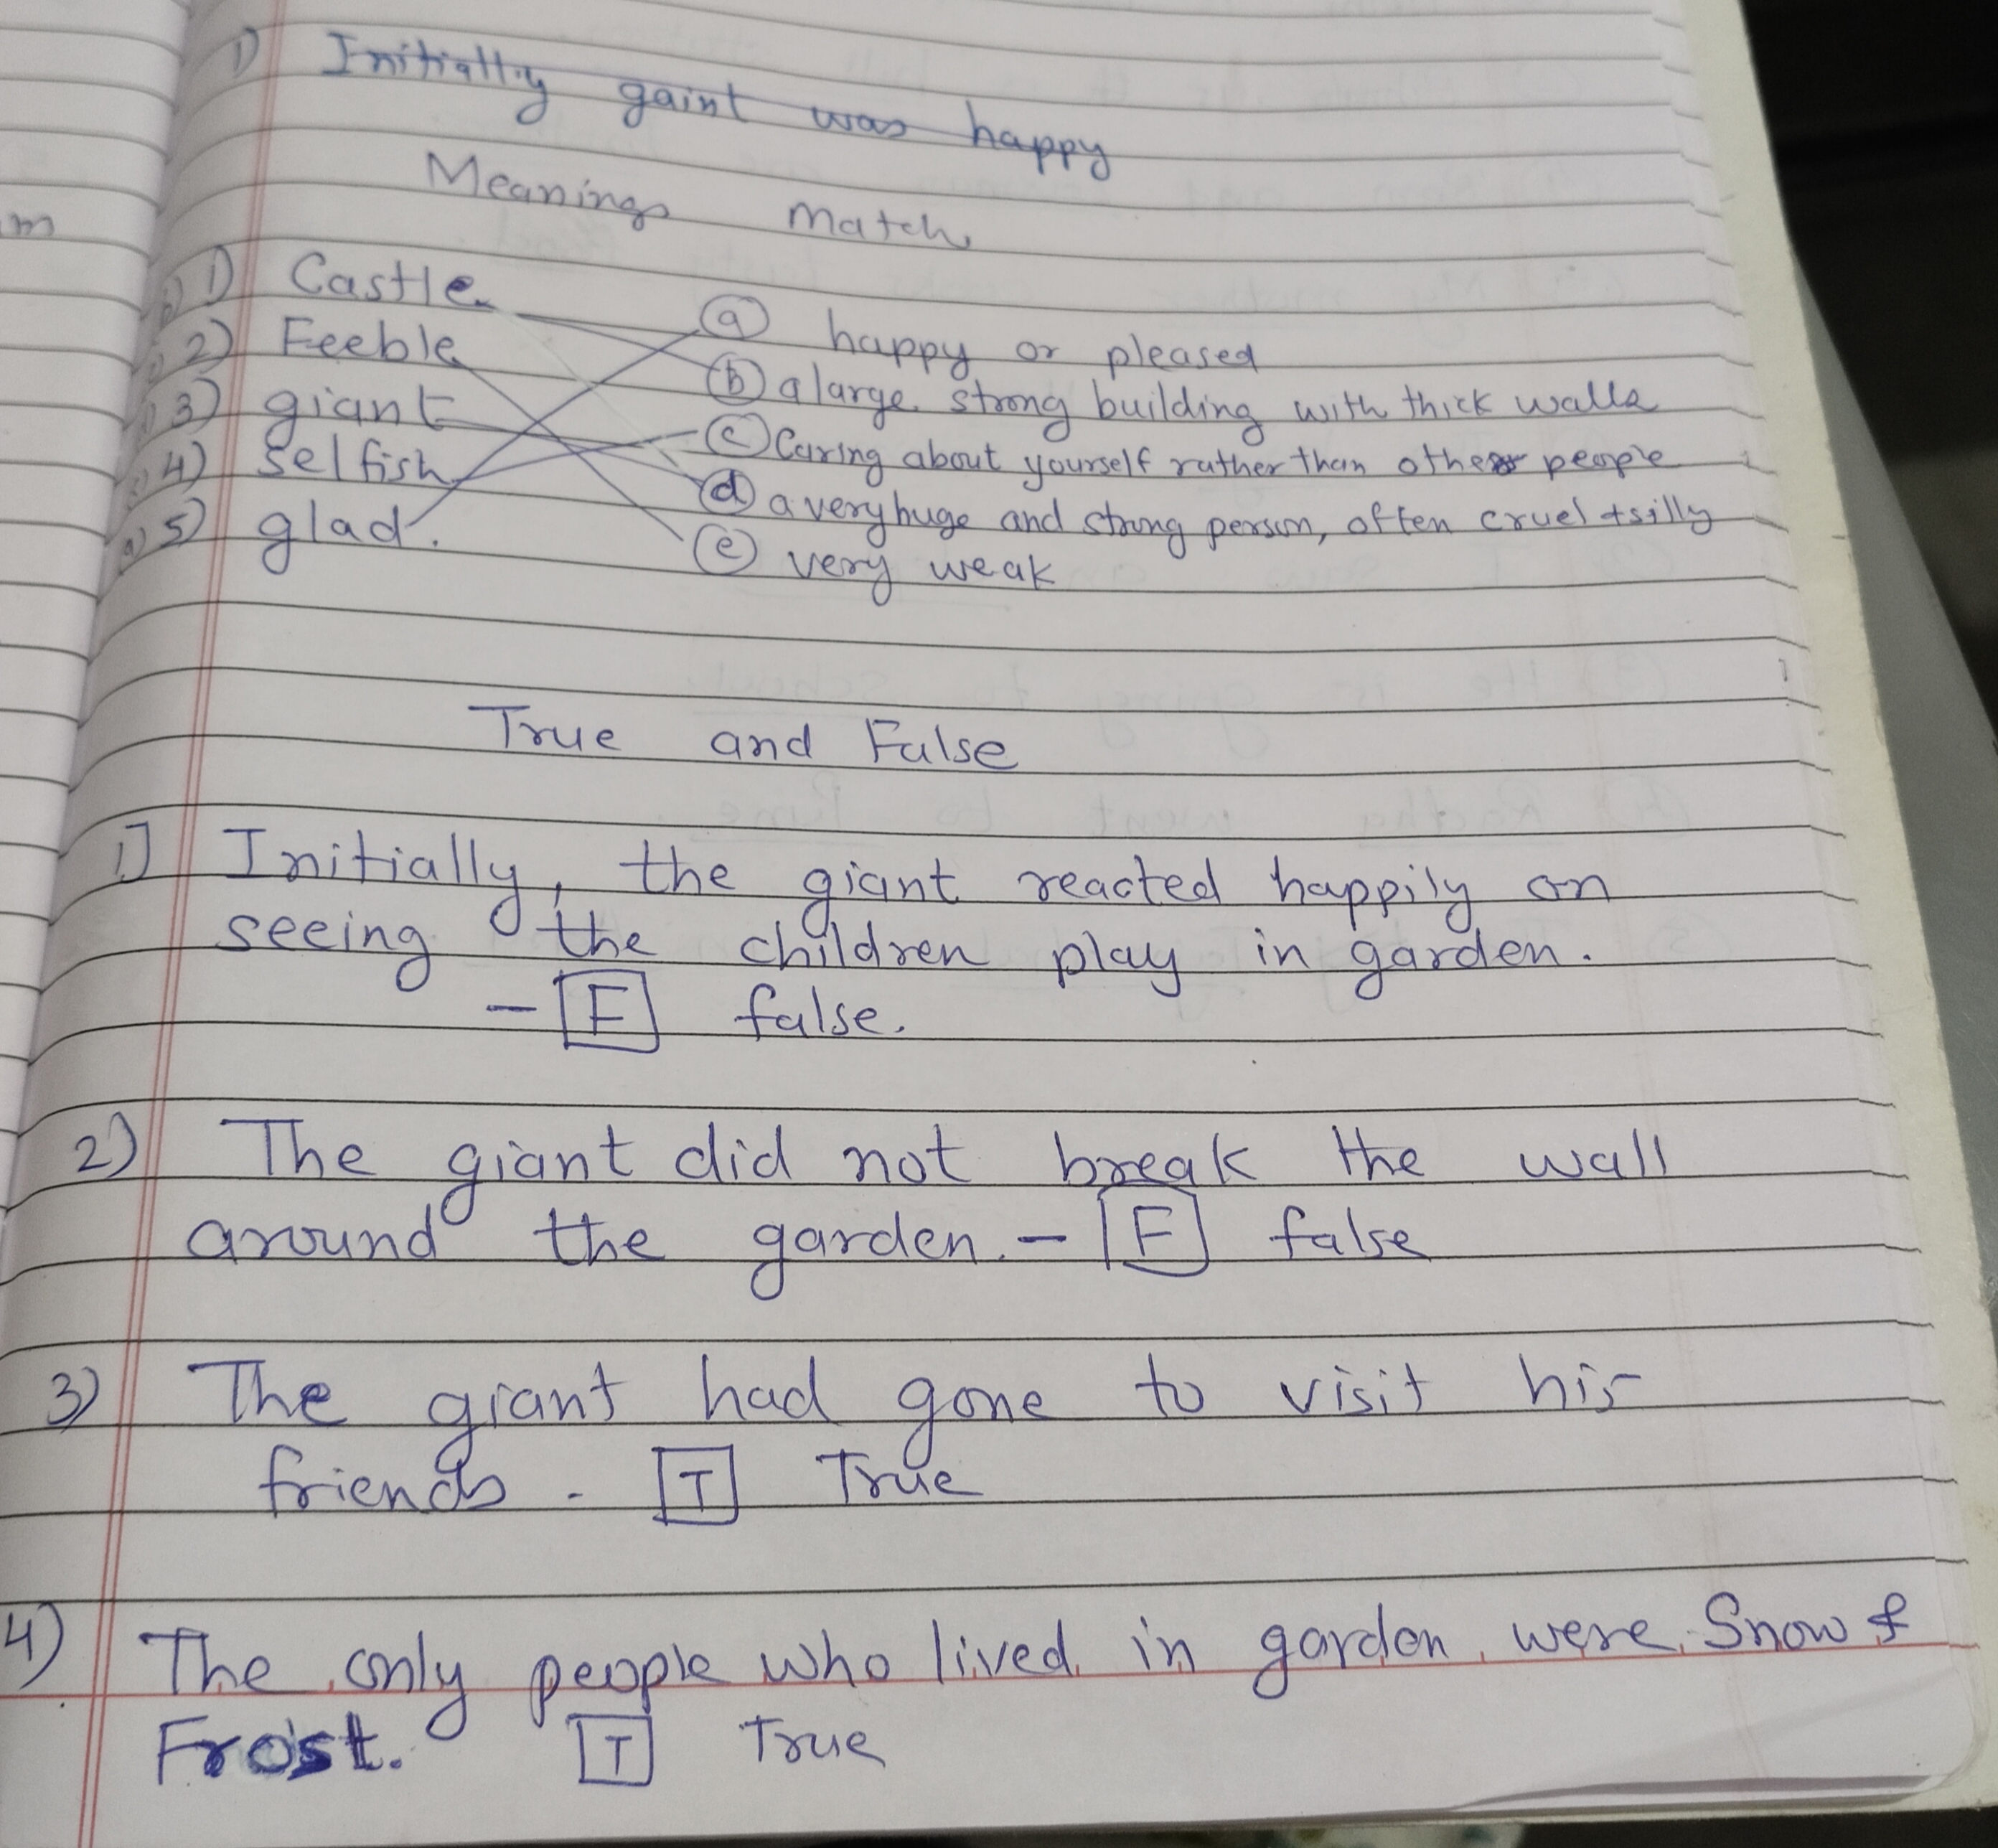 1) Initially gaint was happy
Meanings match
1) Castle
2) Feeble
3) giant
4) selfish
5) glad.
a happy or pleased
b a large strong building with thick walls
c Caring about yourself rather than other people
d a very huge and strong person, often cruel + silly
e very weak
True and False
1] Initially, the giant reacted happily on
seeing the children play in garden.
- F false.
2) The giant did not break the wall
around the garden. - F false
3) The giant had gone to visit his
friends. T True
4) The only people who lived in garden were Snow &
Frost. T True